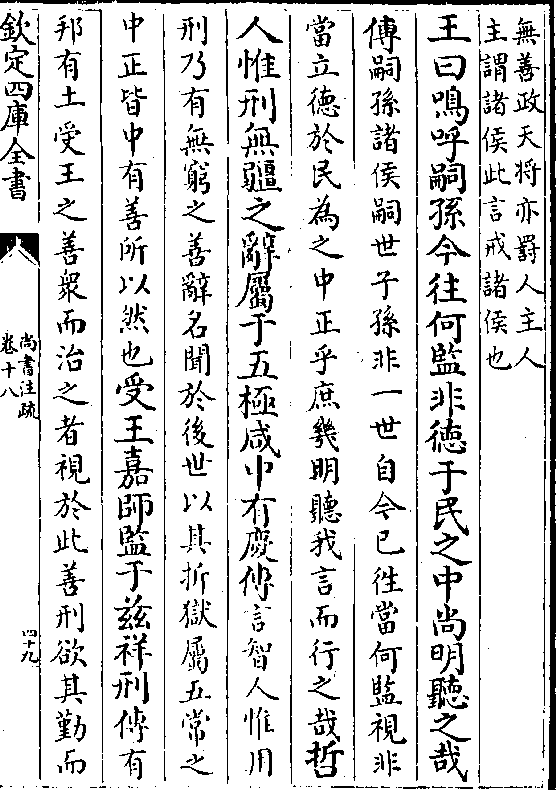 無善政天将亦罸人主人
主謂諸侯此言戒諸侯也
王曰嗚呼嗣孫今往何監非徳于民之中尚明聽之哉
傳嗣孫諸侯嗣世子孫非一世自今已徃當何監視非
當立徳於民為之中正乎庶幾明聽我言而行之哉哲
人惟刑無疆之辭屬于五極咸中有慶傳言智人惟用
刑乃有無窮之善辭名聞於後世以其折獄屬五常之
中正皆中有善所以然也受王嘉師監于兹祥刑傳有
邦有土受王之善衆而治之者視於此善刑欲其勤而
欽定四庫全書
尚書注疏
卷十八
四十九